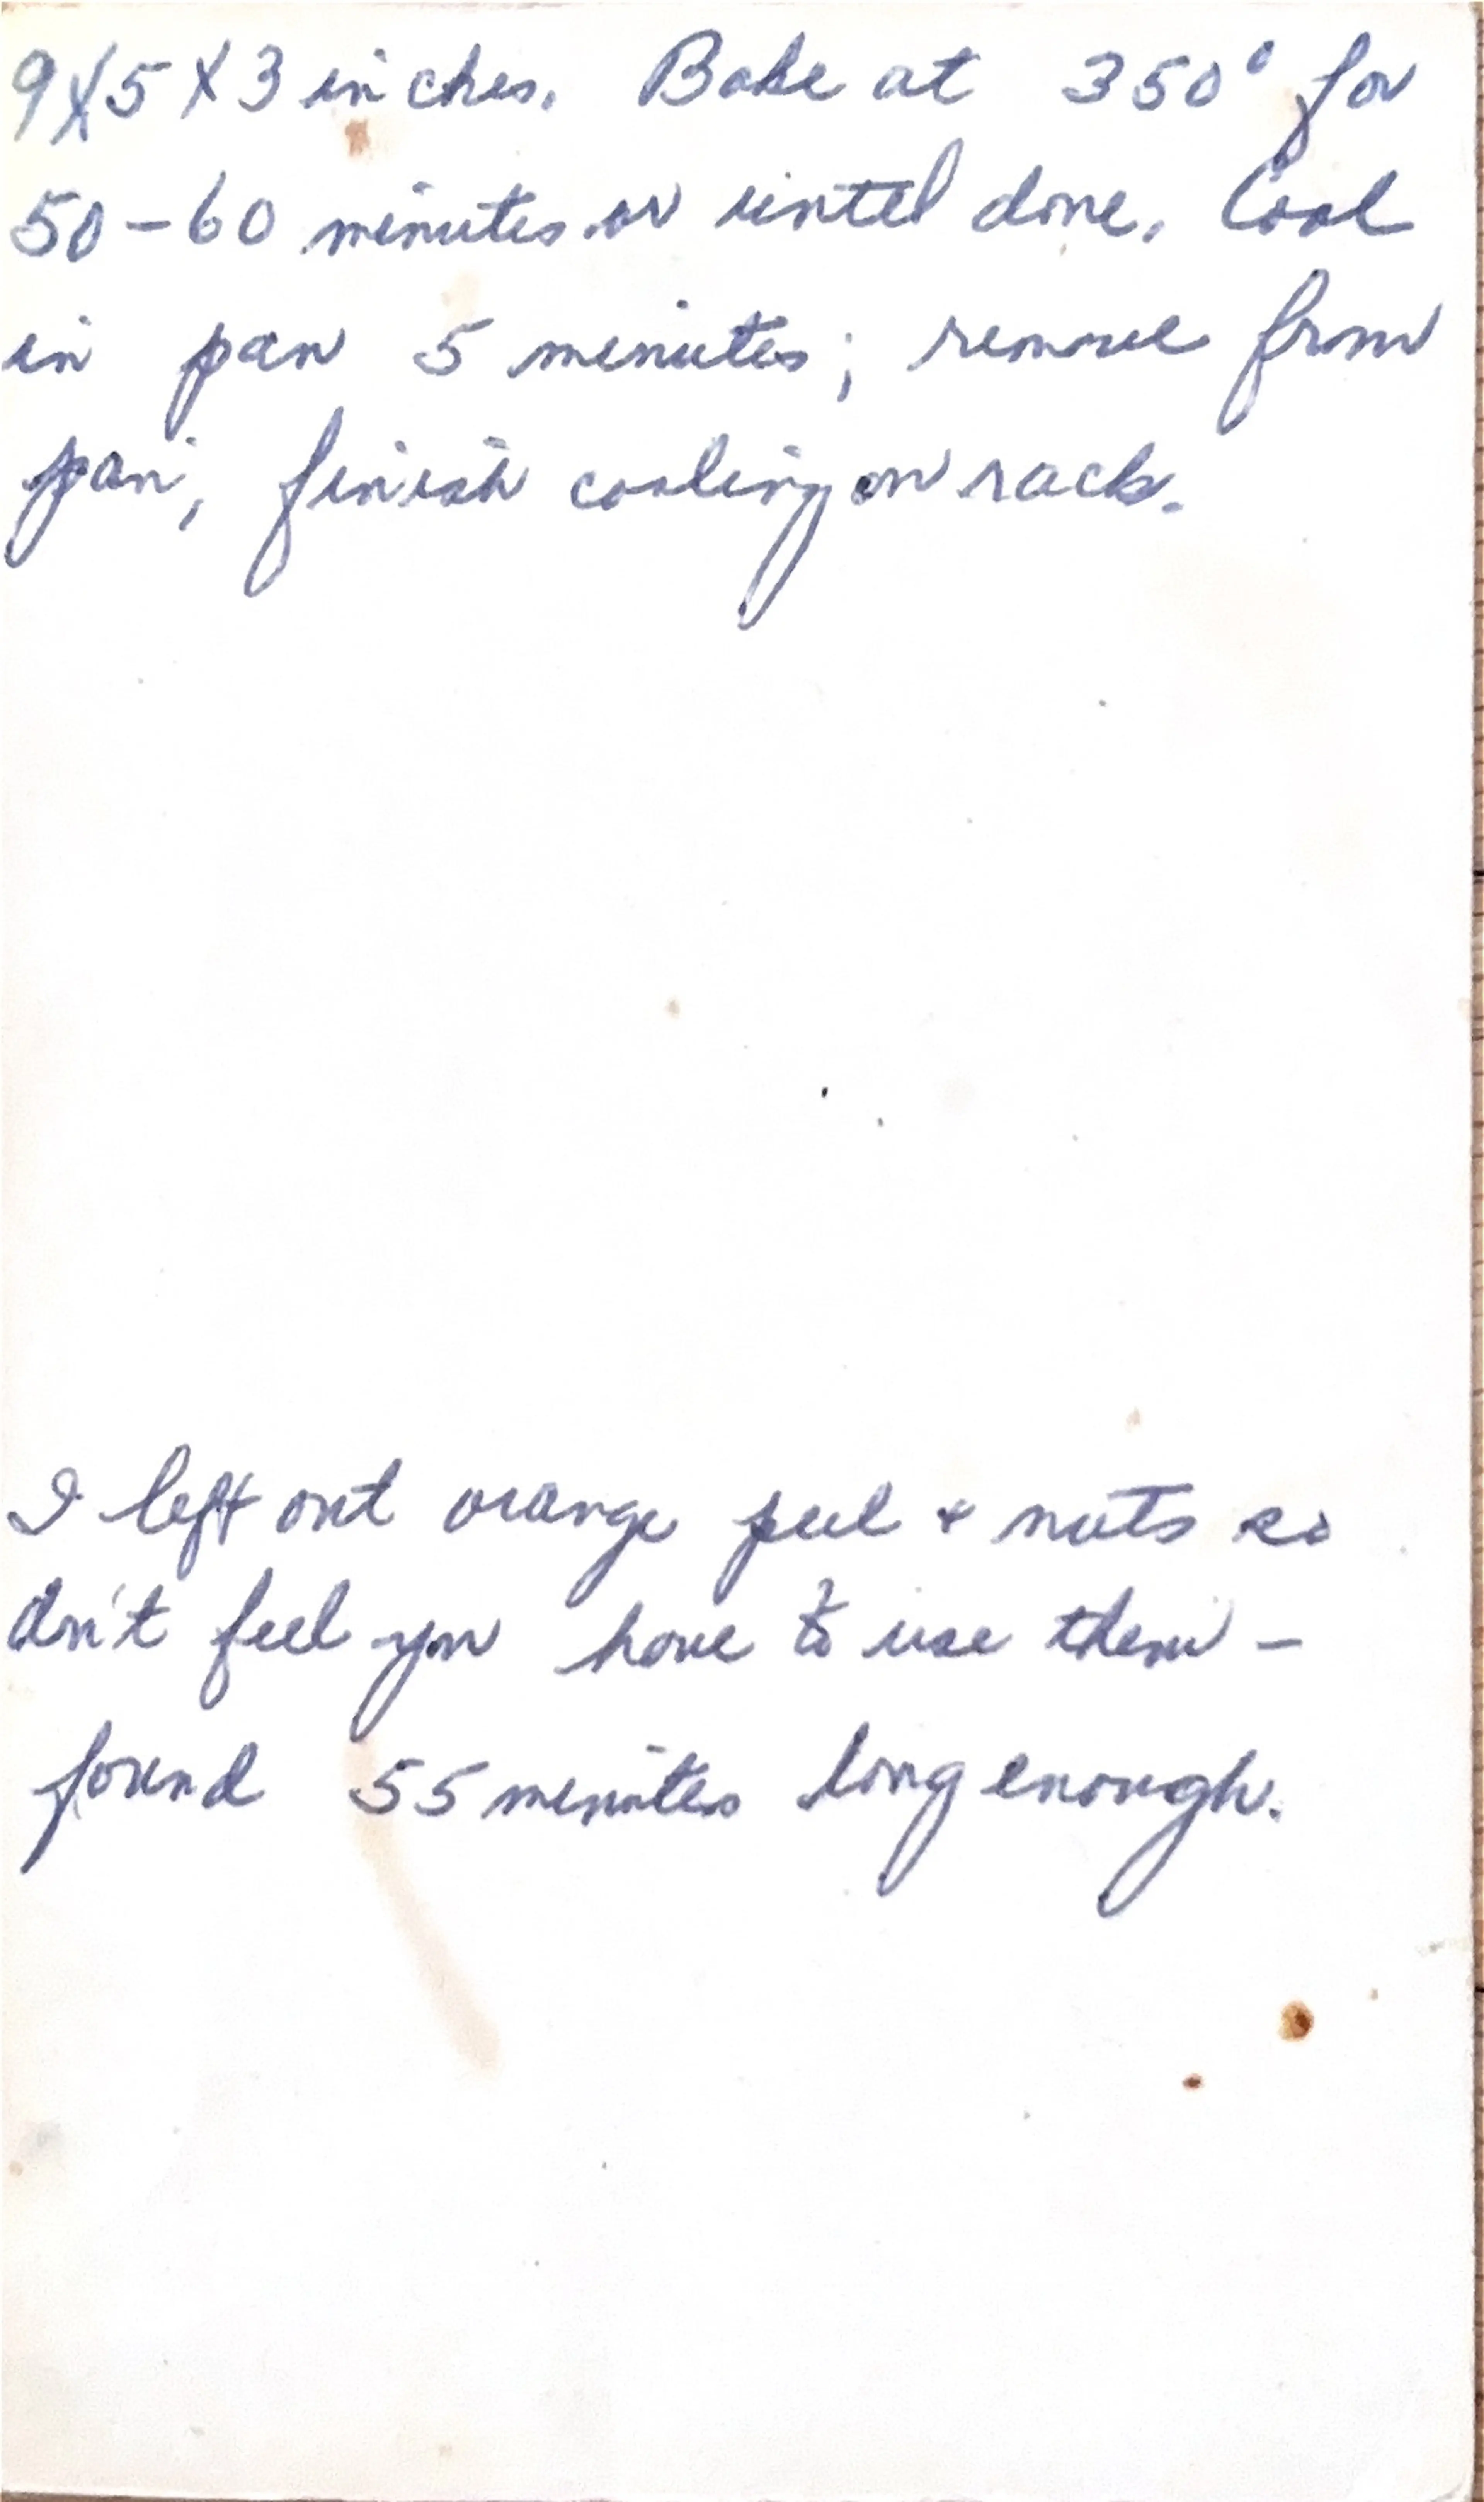 9X5X3 inches. Bake at 350° for
50-60 minutes or until done. Cool
in pan 5 minutes; remove from
pan; finish cooling on rack.
I left out orange peel & nuts so
don't feel you have to use them -
found 55 minutes long enough.